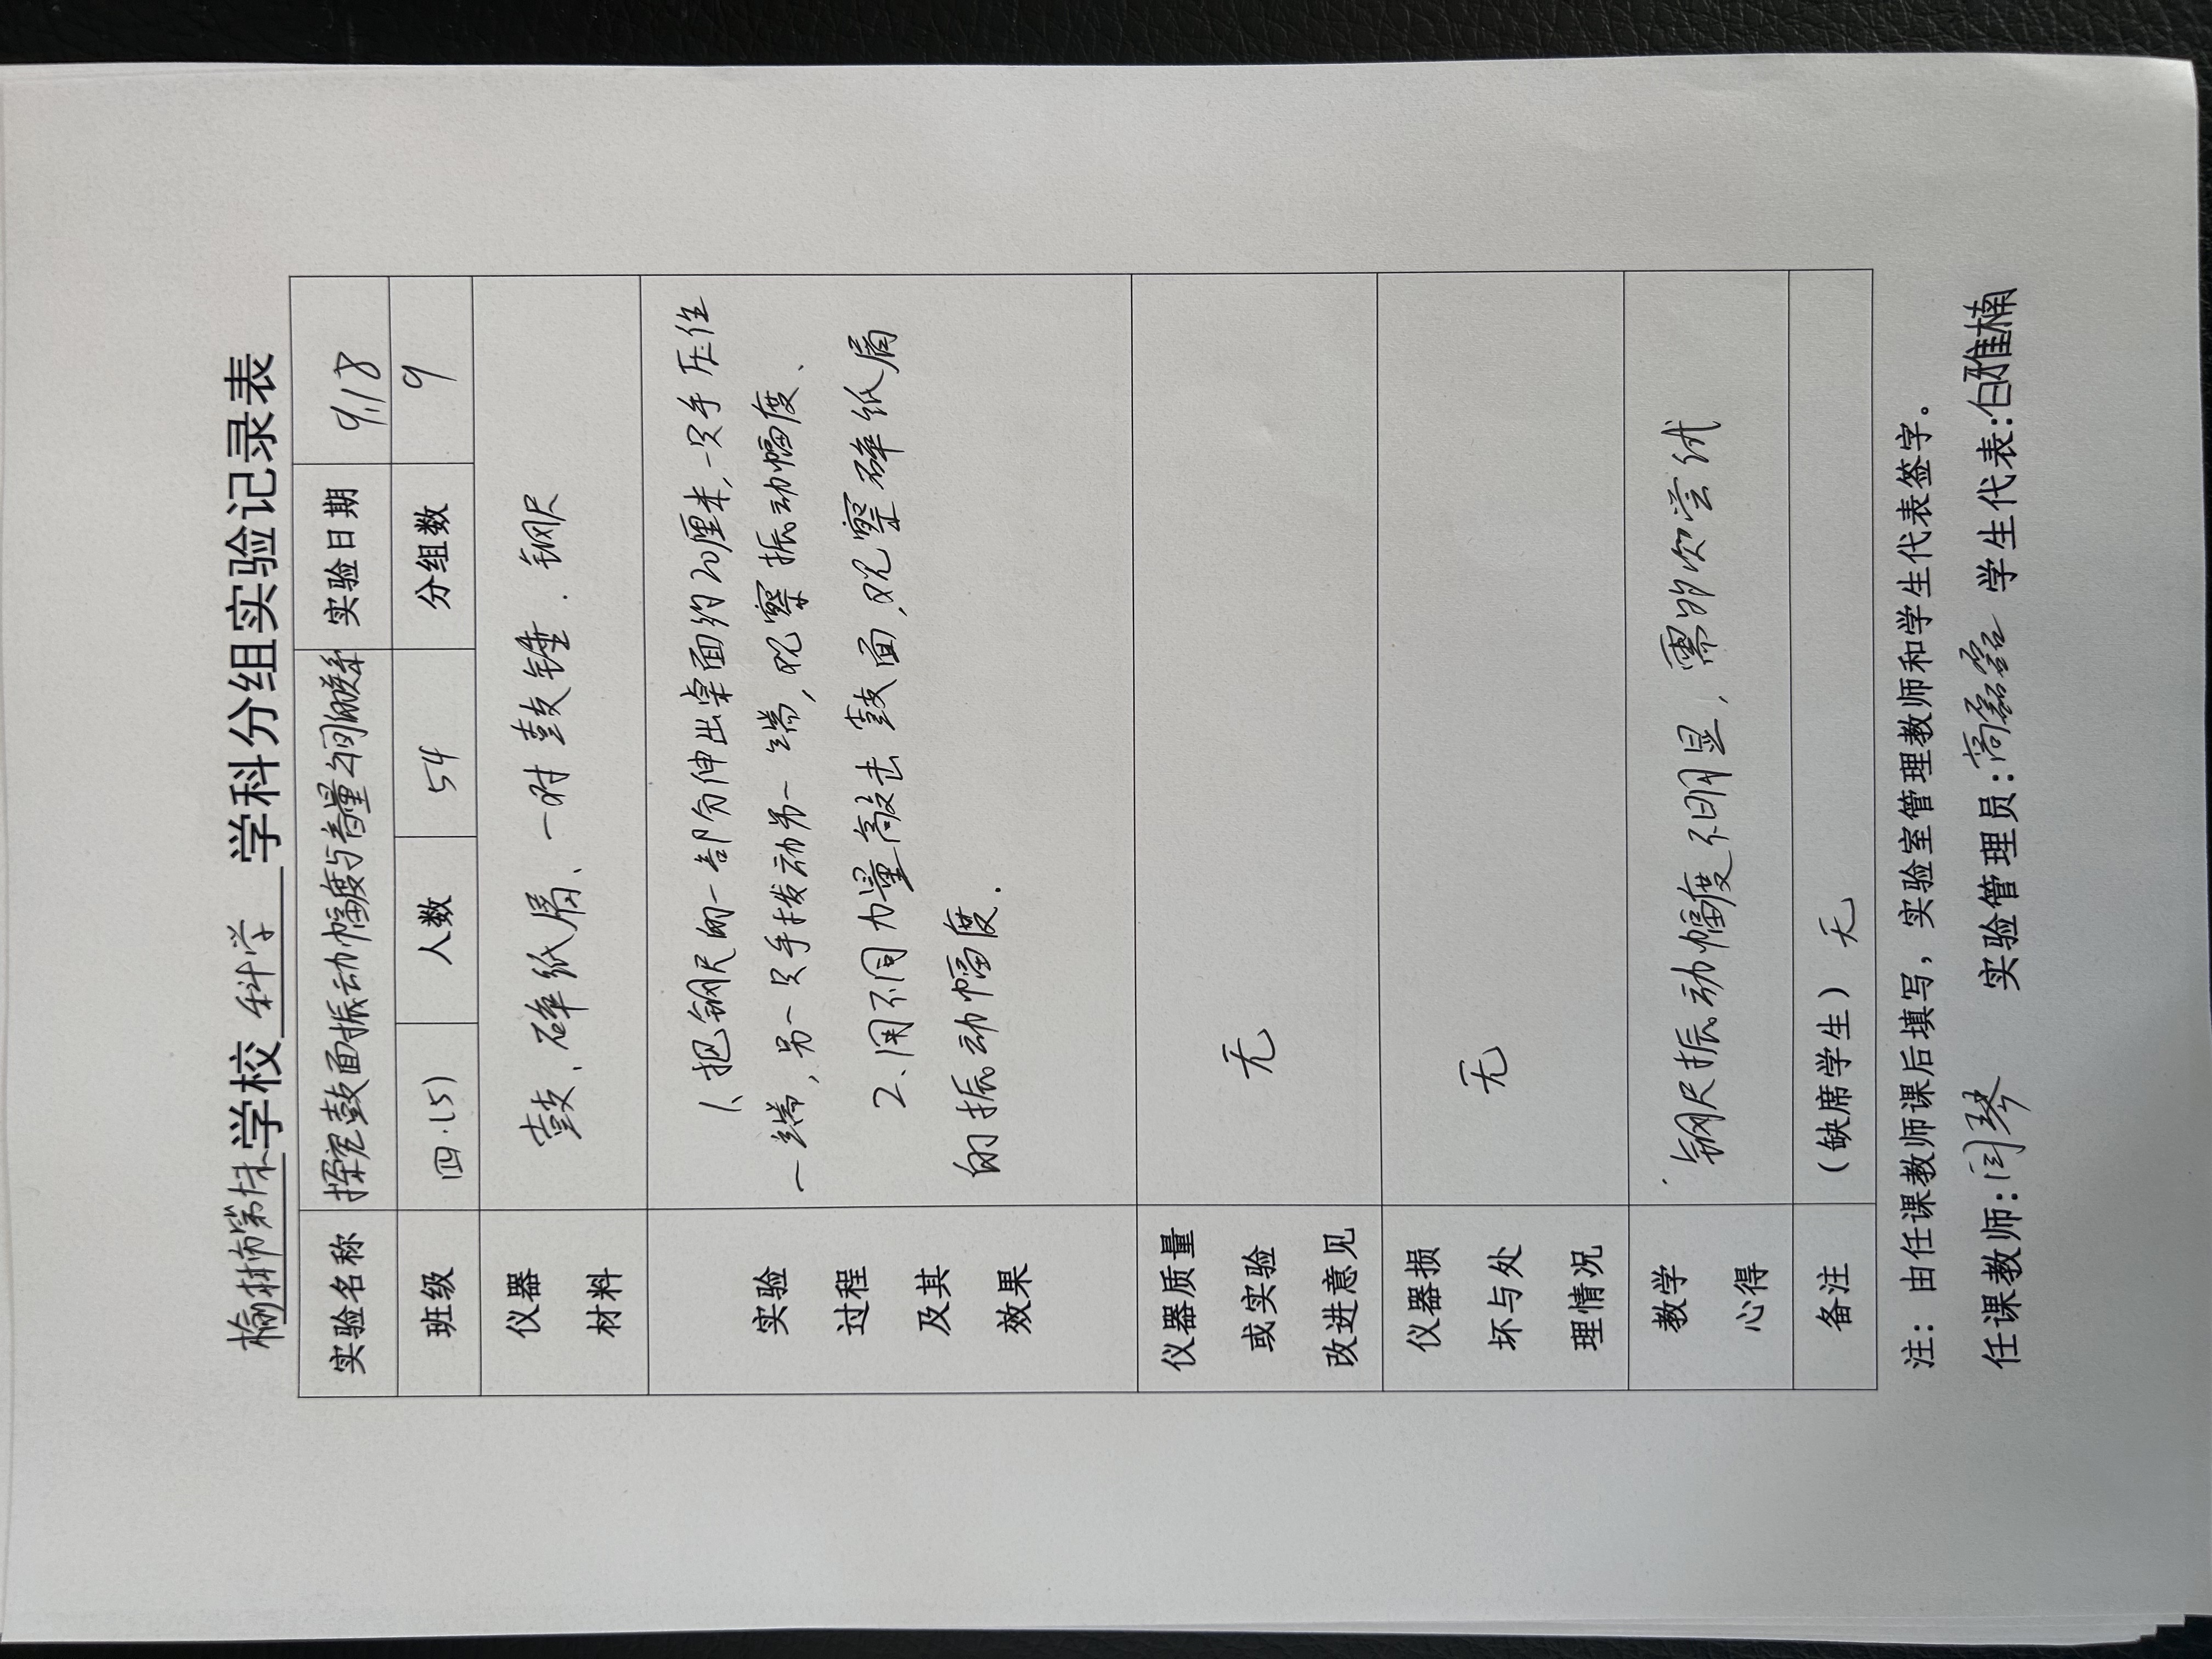 榆林市第十小学校 科学 学科分组实验记录表
实验名称 探究鼓面振动幅度与音量之间的联系 实验日期 9.18
班级 四.(5) 人数 54 分组数 9
仪器材料 鼓、碎纸屑、一对鼓锤.钢尺
实验过程及其效果
1、把钢尺的一部分伸出桌面约20厘米,一只手压住
一端,另一只手拨动另一端,观察振动幅度、
2、用不同力量敲击鼓面,观察碎纸屑
的振动幅度.
仪器质量或实验改进意见 无
仪器损坏与处理情况 无
教学心得 钢尺振动幅度不明显,需多次尝试
备注 (缺席学生) 无
注：由任课教师课后填写，实验室管理教师和学生代表签字。
任课教师:闫琴 实验管理员:高 学生代表:白雅楠